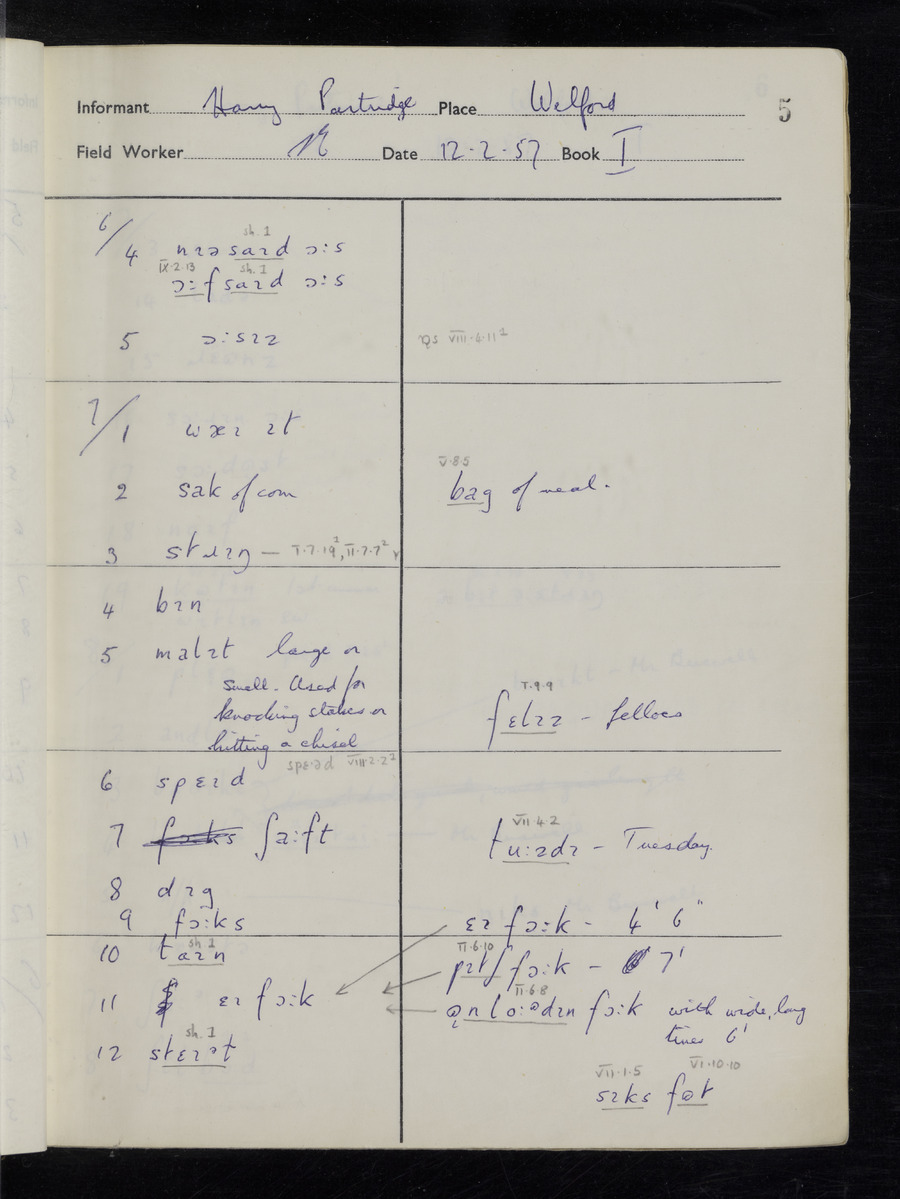 Informant Harry Partridge Place Welford 5
Field Worker Date 12·2·57 Book I
6/
sh. 1
4 nɪəsaɪd ɔːs
IX·2·13 sh. 1
ɔːfsaɪd ɔːs
5 ɔːsɪz VIII·6·11²
7/
1 wæɪ ɪt
V·8·5
2 sak of corn bag of meal.
3 stɹɪŋ — I·7·19², II·7·7²
4 bɪn
5 malɪt large or
small. Used for
knocking stakes or
hitting a chisel
I·9·9
fɛlɪz - felloes
speːəd VIII·2·2²
6 spɛɪd
VII·4·2
7 ʃaːft tuːzdɪ - Tuesday.
8 dɪg
9 fɔːks ɛɪ fɔːk - 4' 6"
sh. 1
10 taɪn
II·6·10
pɪtʃ fɔːk - 7'
11 ɛɪ fɔːk
II·6·8
ənloːədɪn fɔːk with wide, long
tines 6'
sh. 1
12 stɛɪət
VII·1·5 VI·10·10
sɪks fət